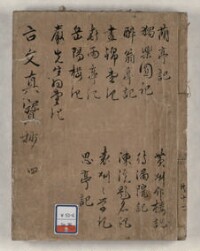 蘭亭記
獨樂園記
醉翁亭記
晝錦堂記
喜雨亭記
岳陽樓記
嚴先生祠堂記
黄州竹樓記
待漏院記
諫院題名記
袁州学記
思亭記
古文真寶抄 四